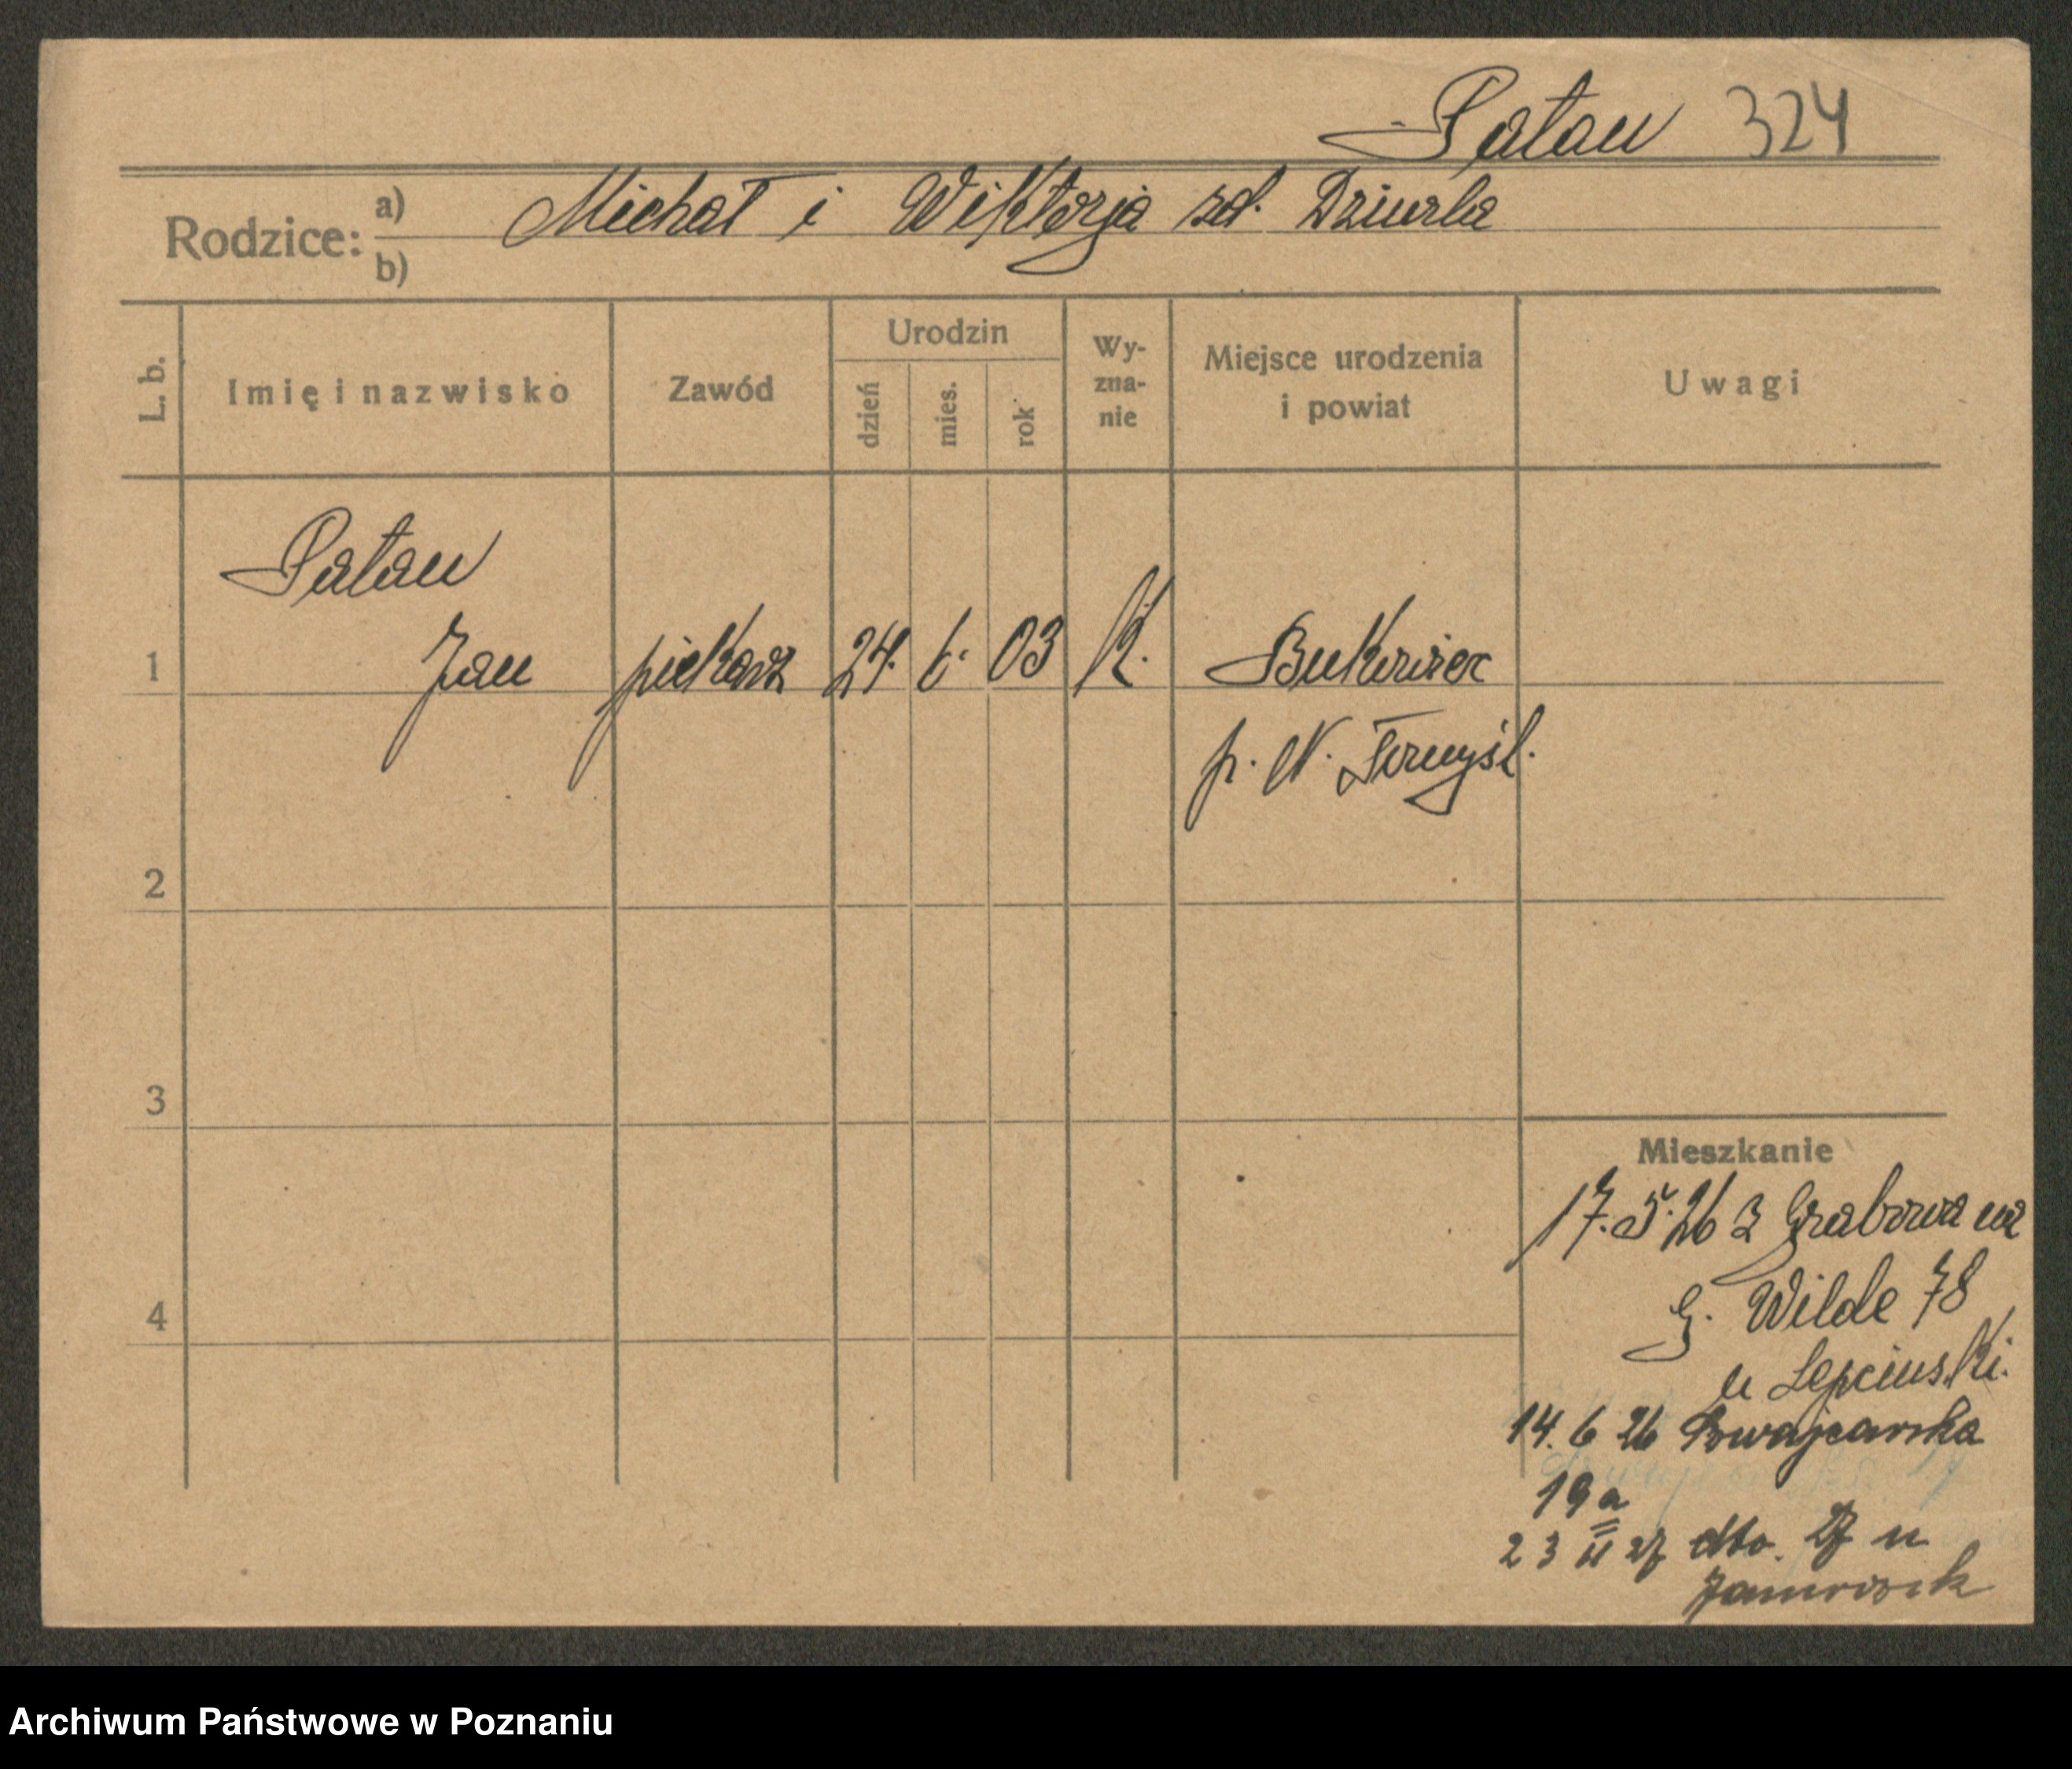 Patan 324
Rodzice: a) Michał i Wiktorja zd. Dziurla
b)
L. b. Imię i nazwisko Zawód Urodzin dzień mies. rok Wy-zna-nie Miejsce urodzenia i powiat Uwagi
Patan
1 Jan piekarz 24. 6. 03 k. Bukowiec
p. N. Tomyśl.
2
3
Mieszkanie
17. 5. 26 z Grabowa na
4
G. Wilde 78
u Lepcinski.
14. 6 26 Szwajcarska
19a
23 II 27 dto. u